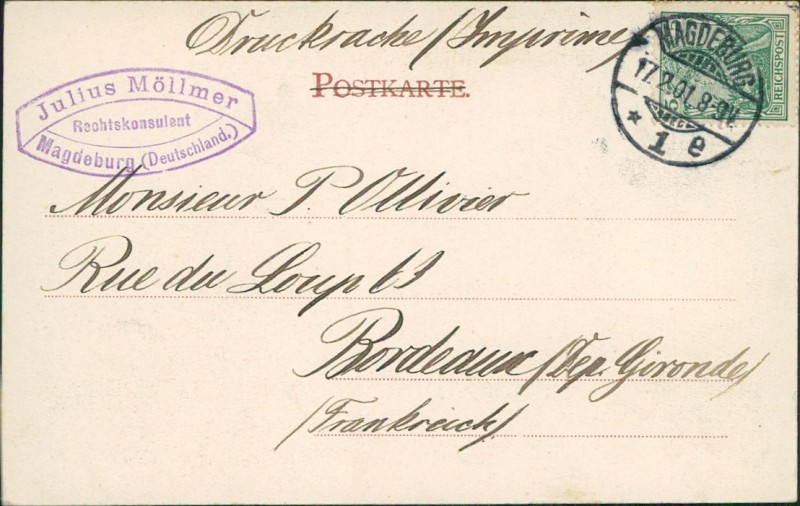 Drucksache (Imprimé)
POSTKARTE.
Julius Möllmer
Rechtskonsulent
Magdeburg (Deutschland.)
MAGDEBURG
17.2.01.8-9V.
* 1 e
REICHSPOST
Monsieur P. Ollivier
Rue du Loup 63
Bordeaux (Dep. Gironde)
(Frankreich)